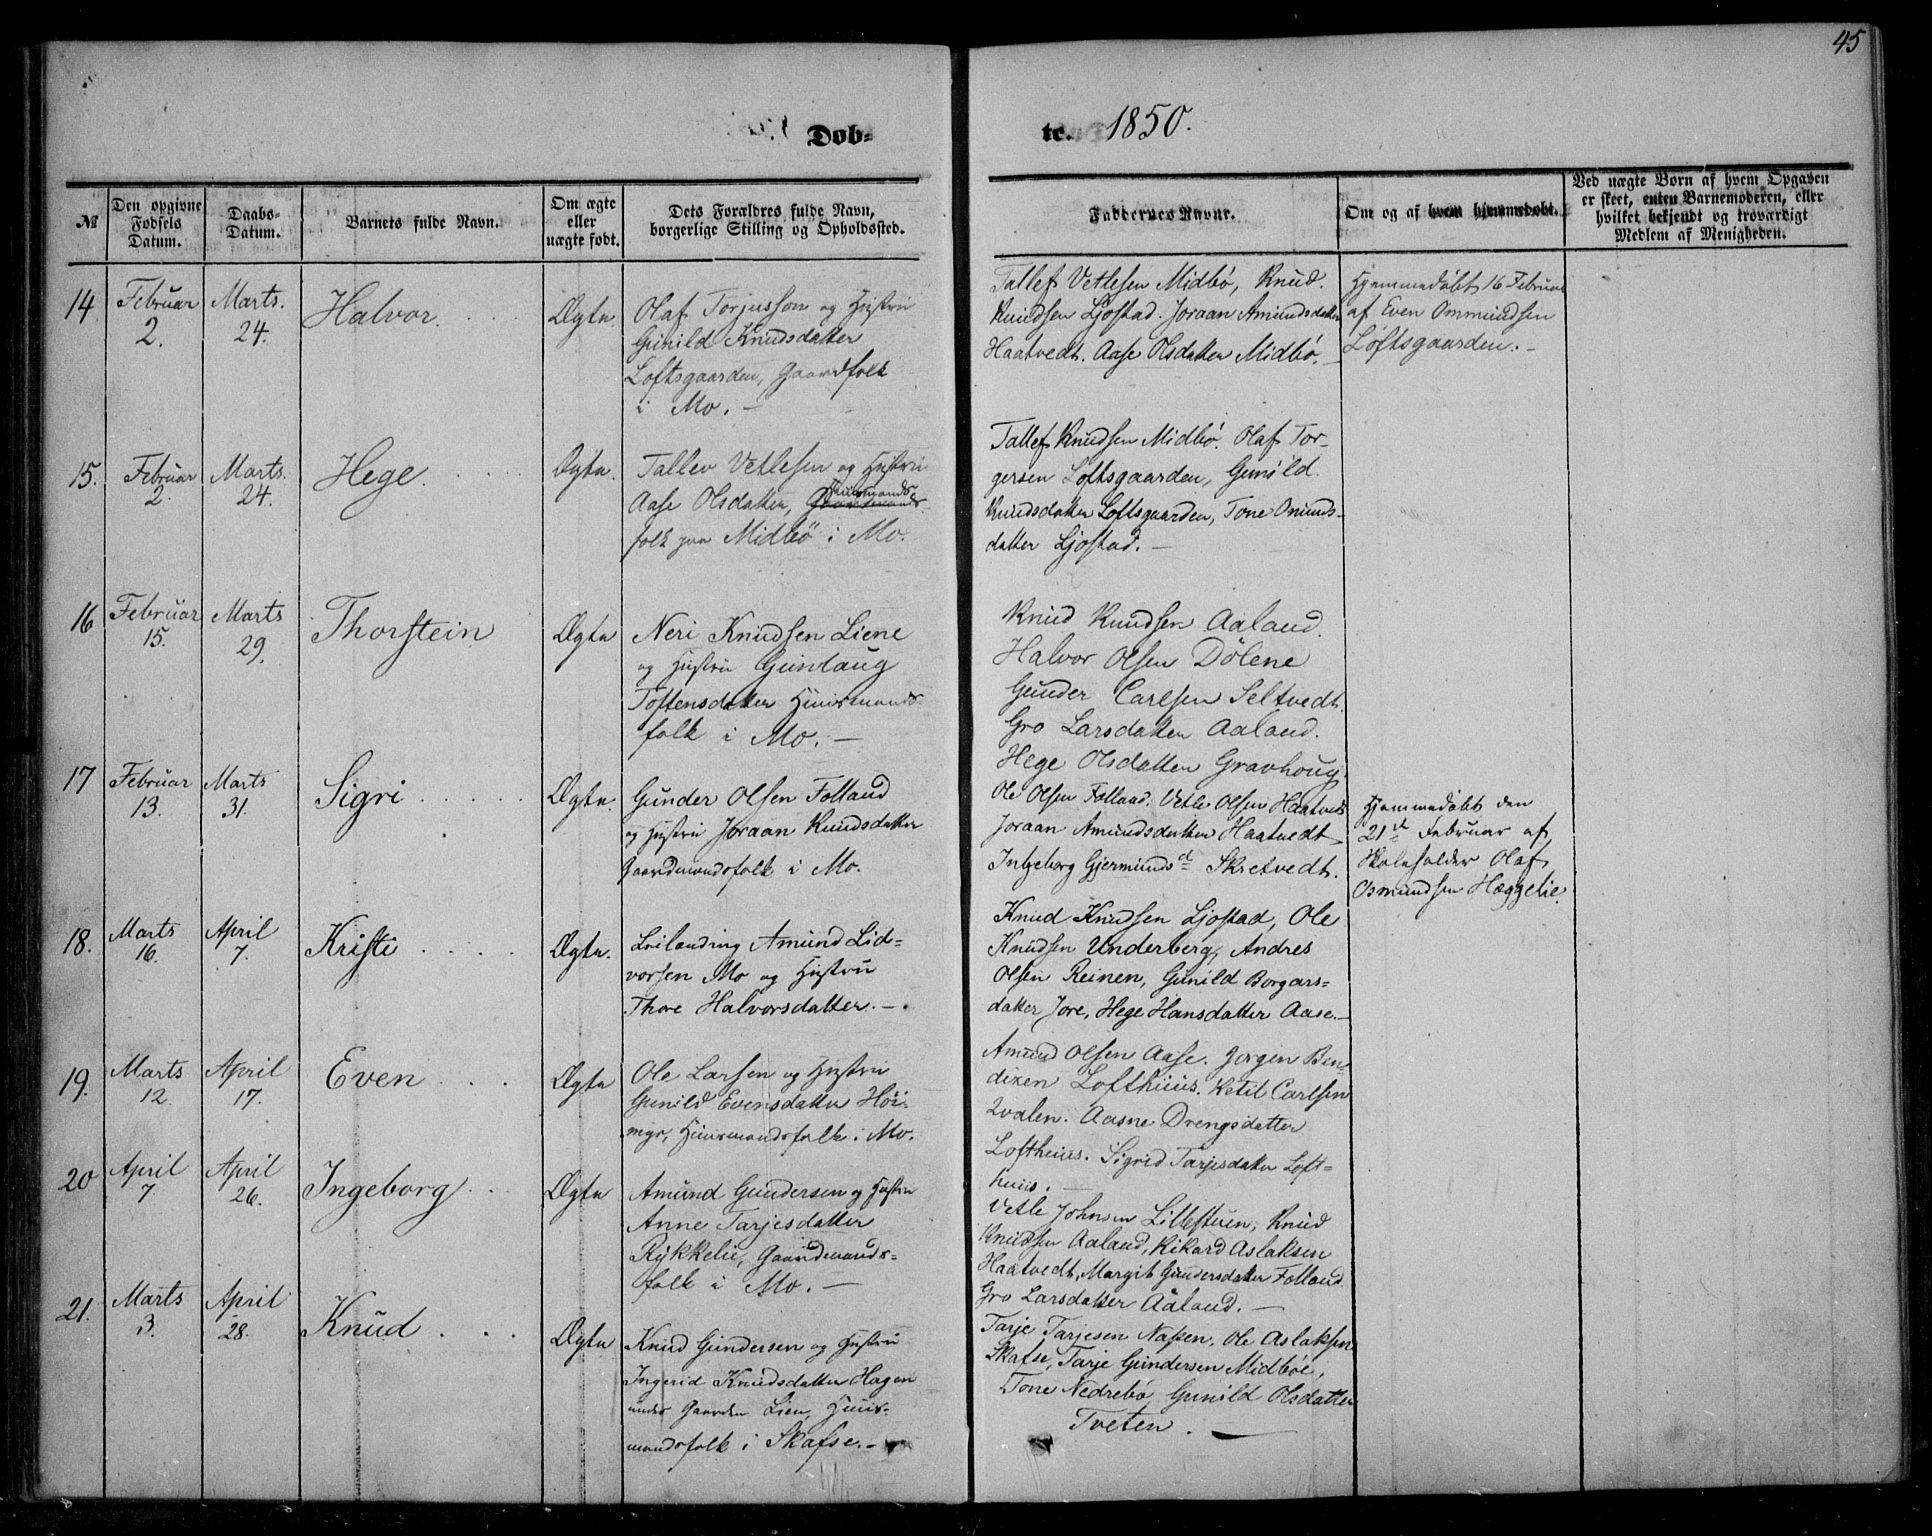 45
Døb-
te. 1850.
№
Den opgivne Fødsels Datum.
Daabs-Datum.
Barnets fulde Navn.
Om ægte eller uægte født.
Dets Forældres fulde Navn, borgerlige Stilling og Opholdssted.
Faddernes Navne.
Om og af hvem hjemmedøbt.
Ved uægte Børn af hvem Opgaven er skeet, enten Barnemoderen, eller hvilket bekjendt og troværdigt Medlem af Menigheden.
14 Februar 2. Marts. 24. Halvor. Ægte.
Olaf Torjusson og Hustru
Gunild Knudsdatter
Loftsgaarden, Gaardfolk
i Mo. –
Tallef Vetlesen Midbö, Knud.
Knudsen Ljostad. Joraan Amundsdatter
Haatvedt. Aase Olsdatter Midbö.
Hjemmedöbt 16 Februar
af Even Ommundsen
Loftsgaarden. –
15. Februar 2. Marts. 24. Hege. Ægte.
Tallev Vetlesen og Hustru
Aase Olsdatter, Huusmands-
folk paa Midbö i Mo.
Tallef Knudsen Midbö. Olaf Tor-
gersen Loftsgaarden, Gunild
Knudsdatter Loftsgaarden, Tone Omunds-
datter Ljostad. –
16 Februar 15. Marts 29. Thorstein Ægte
Neri Knudsen Liene
og Hustru Gunlaug
Tostensdatter Huusmands-
folk i Mo. –
Knud Knudsen Aaland.
Halvor Olsen Dölene
Gunder Carlsen Seltvedt.
Gro Larsdatter Aaland.
Hege Olsdatter Gravhoug.
17 Februar 13. Marts 31. Sigri Ægte.
Gunder Olsen Folland
og Hustru Joraan Knudsdatter
Gaardmandsfolk i Mo.
Ole Olsen Folland. Vetle Olsen Haatvedt
Joraan Amundsdatter Haatvedt
Ingeborg Gjermundsd. Skretvedt.
Hjemmedöbt den
21de Februar af
Skoleholder Olaf
Osmundsen Hæggelie.
18. Marts 16. April 7. Kristi Ægte.
Leilænding Amund Lid-
vorsen Mo og Hustru
Thore Halvorsdatter. –
Knud Knudsen Ljostad, Ole
Knudsen Underberg, Andres
Olsen Reinen, Gunild Borgars-
datter Jore, Hege Hansdatter Aase. –
19. Marts 12. April 17. Even Ægte
Ole Larsen og Hustru
Gunild Evensdatter Höi-
myr, Huusmandsfolk i Mo.
Amund Olsen Aase. Jorgen Ben-
dixen Lofthuus. Ketil Carlsen
Qvalen. Aasne Drengsdatter
Lofthuus. Sigrid Tarjesdatter Loft-
huus. –
20 April 7. April 26. Ingeborg Ægte
Amund Gundersen og Hustru
Anne Tarjesdatter
Rykkelie, Gaardmands-
folk i Mo. –
Vetle Johnsen Lillestuen, Knud
Knudsen Aaland, Rikard Aslaksen
Haatvedt, Margit Gundersdatter Folland
Gro Larsdatter Aaland. –
21. Marts 3. April 28. Knud Ægte
Knud Gundersen og Hustru
Ingerid Knudsdatter Hagen
under Gaarden Lien, Huus-
mandsfolk i Skafse. –
Tarje Tarjesen Napen. Ole Aslaksen
Skafse, Tarje Gundersen Midböe,
Tone Nedrebö, Gunild Olsdatter
Tveten. –